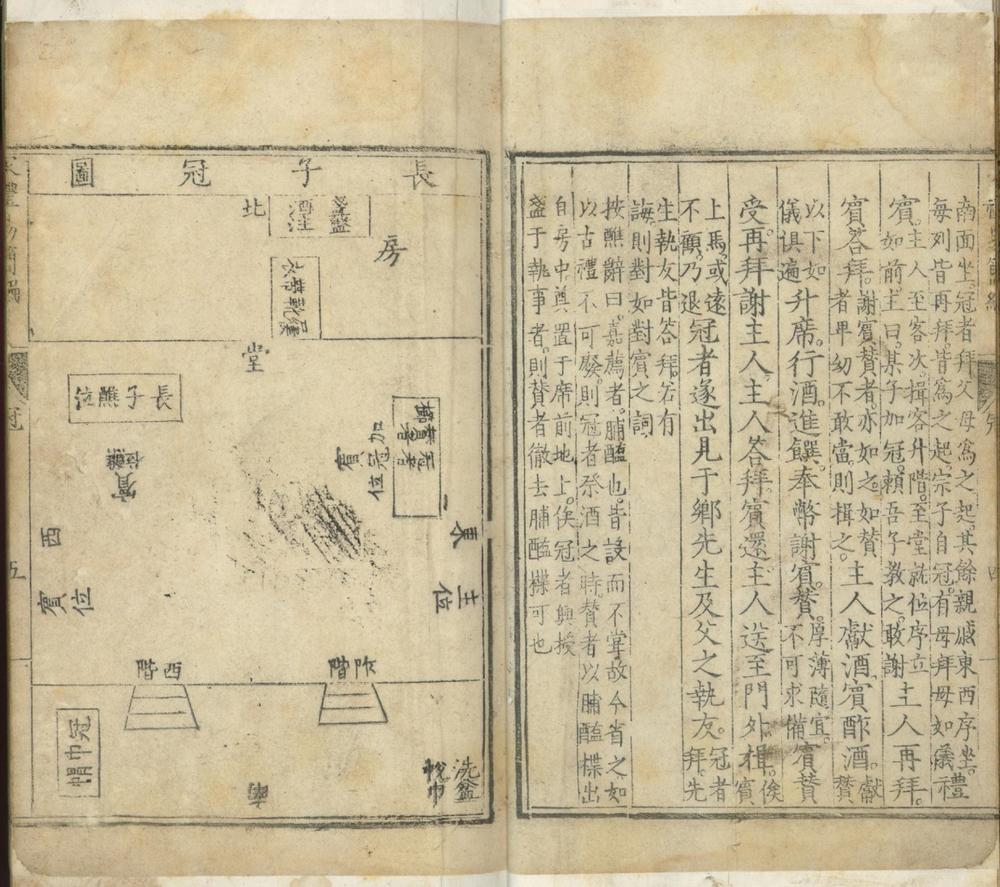 南面坐。冠者拜父母爲之起。其餘親戚東西序坐。
每列皆再拜。皆爲之起。宗子自冠。有母拜母如儀禮
賓。主人至客次。揖客升階。至堂就位序立主人再拜。
賓如前主曰。某子加冠。賴吾子教之。敢謝
賓答拜。謝賓贊者。亦如之。如贊主人獻酒賓酢酒。獻
者卑幼不敢當。則揖之。贊
以下如升席。行酒。進饌。奉幣謝賓贊。厚薄隨宜。賓贊
儀俱遍不可求備
受。再拜謝主人主人答拜賓還主人送至門外。揖。俟
賓
上馬。或遠冠者遂出見于鄉先生及父之執友。冠者
不顧乃退拜。先
生執友皆答拜。若有
誨。則對如對賓之詞
按醮辭曰。嘉薦者。脯醢也。皆設而不嘗故今省之如
以古禮不可廢。則冠者祭酒之時贊者以脯醢楪出
自房中。奠置于席前地上。俟冠者興授
盞于執事者。則贊者徹去脯醢楪可也
長子冠圖
北
盞盤
房
堂
長子醮位
冠者
加冠位
賓
東
西
主位
賓位
阼階
西階
冠巾帽
南
洗盆
帨巾
冠
五